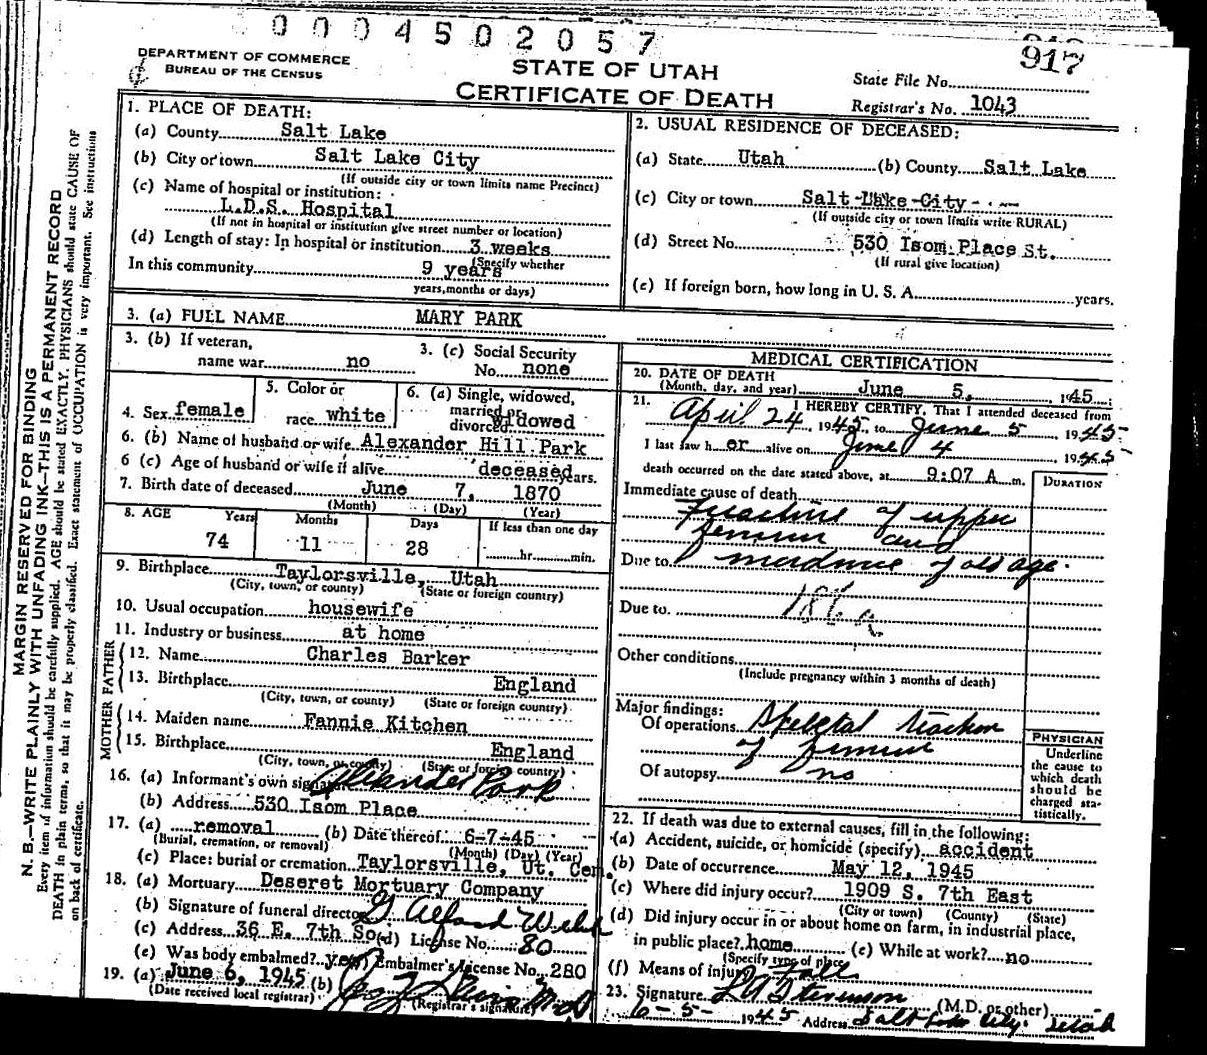 0004502057
917
DEPARTMENT OF COMMERCE
BUREAU OF THE CENSUS
STATE OF UTAH
CERTIFICATE OF DEATH
State File No.
Registrar's No. 1043
MARGIN RESERVED FOR BINDING
N. B.—WRITE PLAINLY WITH UNFADING INK—THIS IS A PERMANENT RECORD
Every item of information should be carefully supplied. AGE should be stated EXACTLY. PHYSICIANS should state CAUSE OF
DEATH in plain terms, so that it may be properly classified. Exact statement of OCCUPATION is very important. See instructions
on back of certificate.
1. PLACE OF DEATH:
(a) County Salt Lake
(b) City or town Salt Lake City
(If outside city or town limits name Precinct)
(c) Name of hospital or institution:
L.D.S. Hospital
(If not in hospital or institution give street number or location)
(d) Length of stay: In hospital or institution 3 weeks
(Specify whether
In this community 9 years
years, months or days)
2. USUAL RESIDENCE OF DECEASED:
(a) State Utah (b) County Salt Lake
(c) City or town Salt Lake City
(If outside city or town limits write RURAL)
(d) Street No. 530 Isom Place St.
(If rural give location)
(e) If foreign born, how long in U. S. A. years.
3. (a) FULL NAME MARY PARK
3. (b) If veteran,
name war no
3. (c) Social Security
No. none
4. Sex female
5. Color or
race white
6. (a) Single, widowed,
married or
divorced widowed
6. (b) Name of husband or wife Alexander Hill Park
6 (c) Age of husband or wife if alive deceased years.
7. Birth date of deceased June 7, 1870
(Month) (Day) (Year)
8. AGE Years Months Days If less than one day
74 11 28 hr. min.
9. Birthplace Taylorsville, Utah
(City, town, or county) (State or foreign country)
10. Usual occupation housewife
11. Industry or business at home
FATHER
12. Name Charles Barker
13. Birthplace England
(City, town, or county) (State or foreign country)
MOTHER
14. Maiden name Fannie Kitchen
15. Birthplace England
(City, town, or county) (State or foreign country)
16. (a) Informant's own signature Alexander Park
(b) Address 530 Isom Place
17. (a) removal (b) Date thereof 6-7-45
(Burial, cremation, or removal) (Month) (Day) (Year)
(c) Place: burial or cremation Taylorsville, Ut. Cem.
18. (a) Mortuary Deseret Mortuary Company
(b) Signature of funeral director
(c) Address 36 E. 7th So. (d) License No. 80
(e) Was body embalmed? yes Embalmer's License No. 280
19. (a) June 6, 1945 (b)
(Date received local registrar) (Registrar's signature)
MEDICAL CERTIFICATION
20. DATE OF DEATH
(Month, day, and year) June 5, 1945
21. I HEREBY CERTIFY, That I attended deceased from
April 24 1945 to June 5 1945
I last saw her alive on June 4 1945
death occurred on the date stated above, at 9:07 A m.
DURATION
Immediate cause of death
Fracture of upper
femur and
Due to of old age.
Due to 186a
Other conditions
(Include pregnancy within 3 months of death)
Major findings:
Of operations Skeletal traction
of femur
Of autopsy no
PHYSICIAN
Underline
the cause to
which death
should be
charged sta-
tistically.
22. If death was due to external causes, fill in the following:
(a) Accident, suicide, or homicide (specify) accident
(b) Date of occurrence May 12, 1945
(c) Where did injury occur? 1909 S. 7th East
(City or town) (County) (State)
(d) Did injury occur in or about home on farm, in industrial place,
in public place? home (e) While at work? no
(Specify type of place)
(f) Means of injury Fall
23. Signature L A Stevenson (M.D. or other)
6-5- 1945 Address Salt Lake City Utah